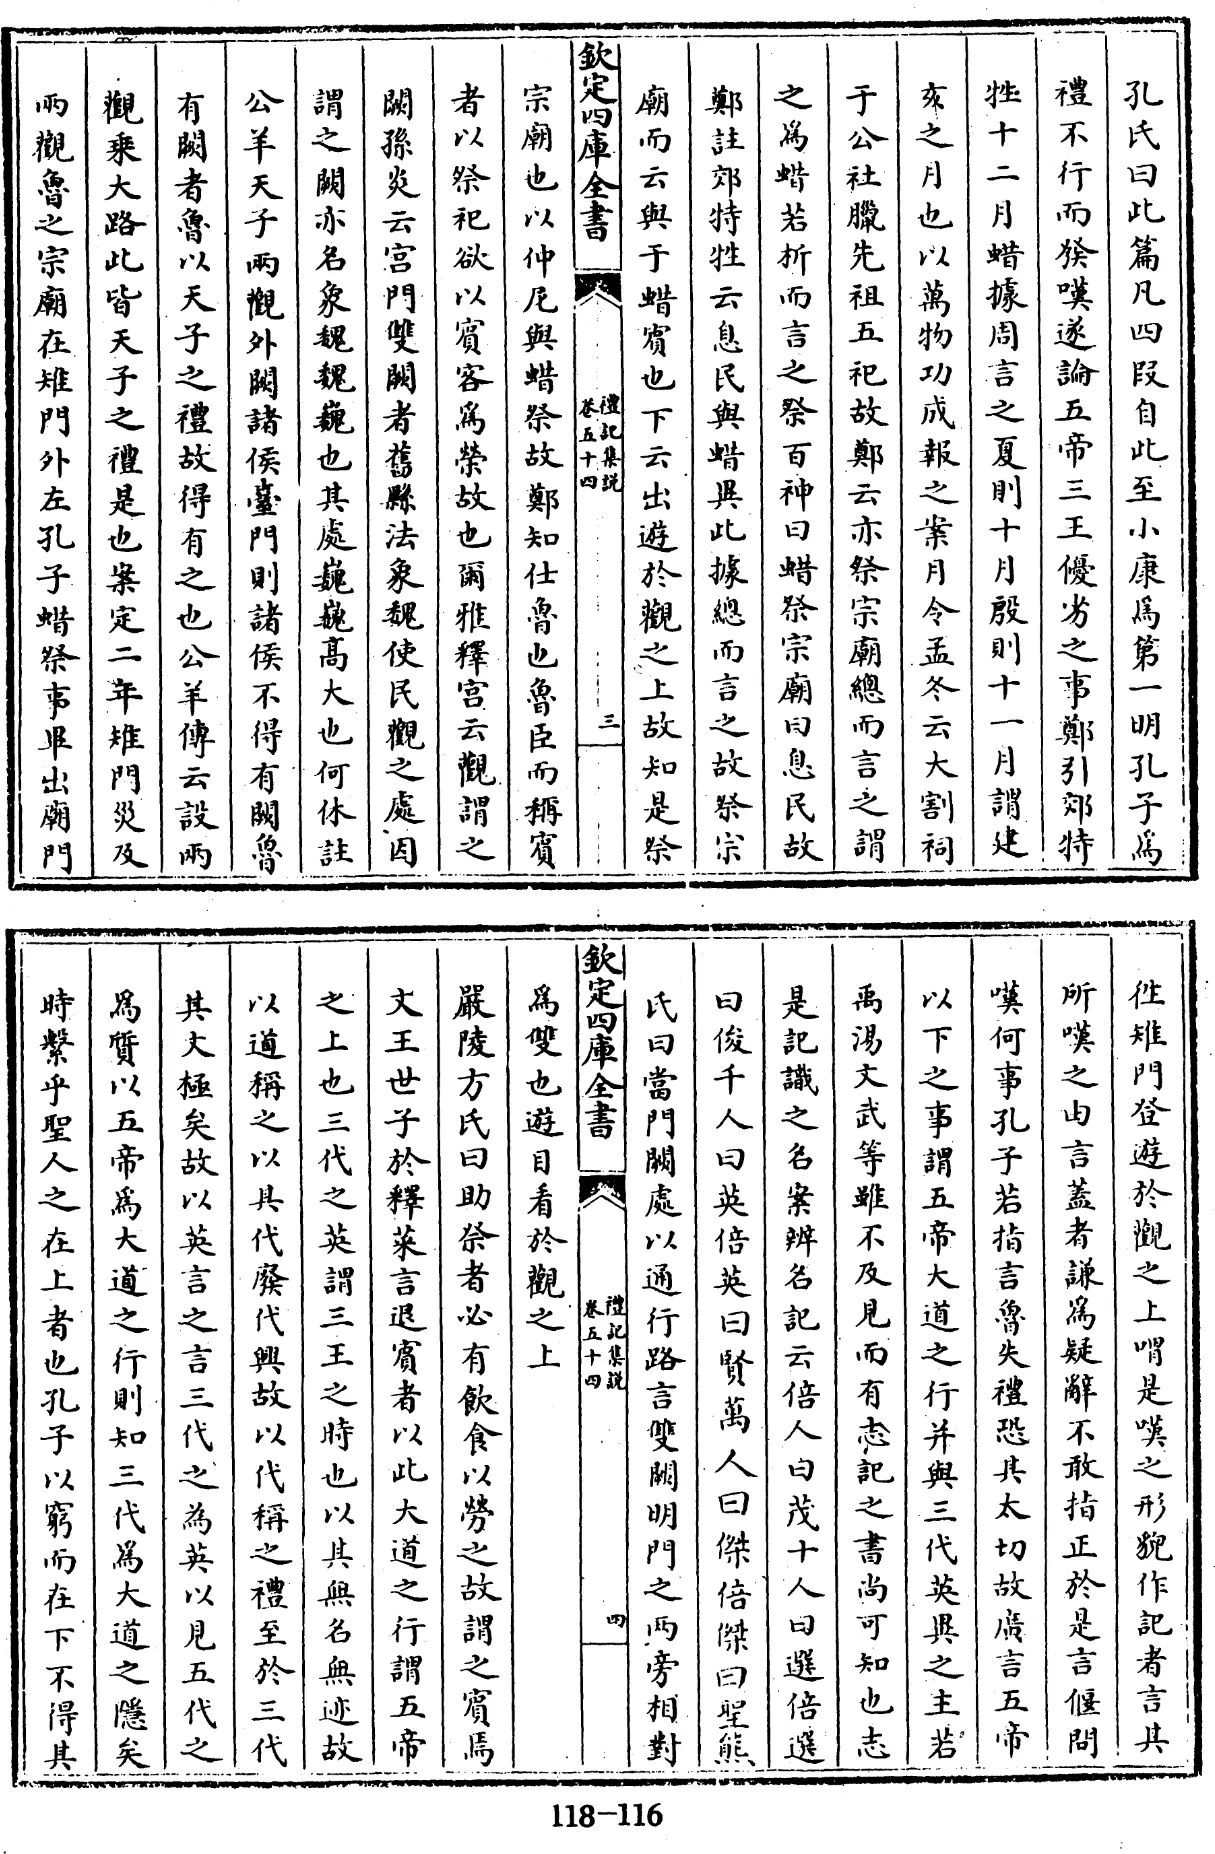 孔氏曰此篇凡四段自此至小康為第一明孔子為
禮不行而發嘆遂論五帝三王優劣之事鄭引郊特
牲十二月蜡據周言之夏則十月殷則十一月謂建
亥之月也以萬物功成報之案月令孟冬云大割祠
于公社臘先祖五祀故鄭云亦祭宗廟總而言之謂
之為蜡若析而言之祭百神曰蜡祭宗廟曰息民故
鄭註郊特牲云息民與蜡異此據總而言之故祭宗
廟而云與于蜡賓也下云出遊於觀之上故知是祭
欽定四庫全書
禮記集説
卷五十四
三
宗廟也以仲尼與蜡祭故鄭知仕魯也魯臣而稱賓
者以祭祀欲以賓客為榮故也爾雅釋宫云觀謂之
闕孫炎云宫門雙闕者舊縣法象魏使民觀之處因
謂之闕亦名象魏魏巍也其處巍巍高大也何休註
公羊天子兩觀外闕諸侯臺門則諸侯不得有闕魯
有闕者魯以天子之禮故得有之也公羊傳云設兩
觀乗大路此皆天子之禮是也案定二年雉門災及
兩觀魯之宗廟在雉門外左孔子蜡祭事畢出廟門
徃雉門登遊於觀之上喟是嘆之形貌作記者言其
所嘆之由言蓋者謙為疑辭不敢指正於是言偃問
嘆何事孔子若指言魯失禮恐其太切故廣言五帝
以下之事謂五帝大道之行并與三代英異之主若
禹湯文武等雖不及見而有志記之書尚可知也志
是記識之名案辨名記云倍人曰茂十人曰選倍選
曰俊千人曰英倍英曰賢萬人曰傑倍傑曰聖熊
氏曰當門闕處以通行路言雙闕明門之兩旁相對
欽定四庫全書
禮記集説
卷五十四
四
為雙也遊目看於觀之上
嚴陵方氏曰助祭者必有飲食以勞之故謂之賓焉
文王世子於釋菜言退賓者以此大道之行謂五帝
之上也三代之英謂三王之時也以其無名無迹故
以道稱之以其代廢代興故以代稱之禮至於三代
其文極矣故以英言之言三代之為英以見五代之
為質以五帝為大道之行則知三代為大道之隱矣
時繫乎聖人之在上者也孔子以窮而在下不得其
118-116